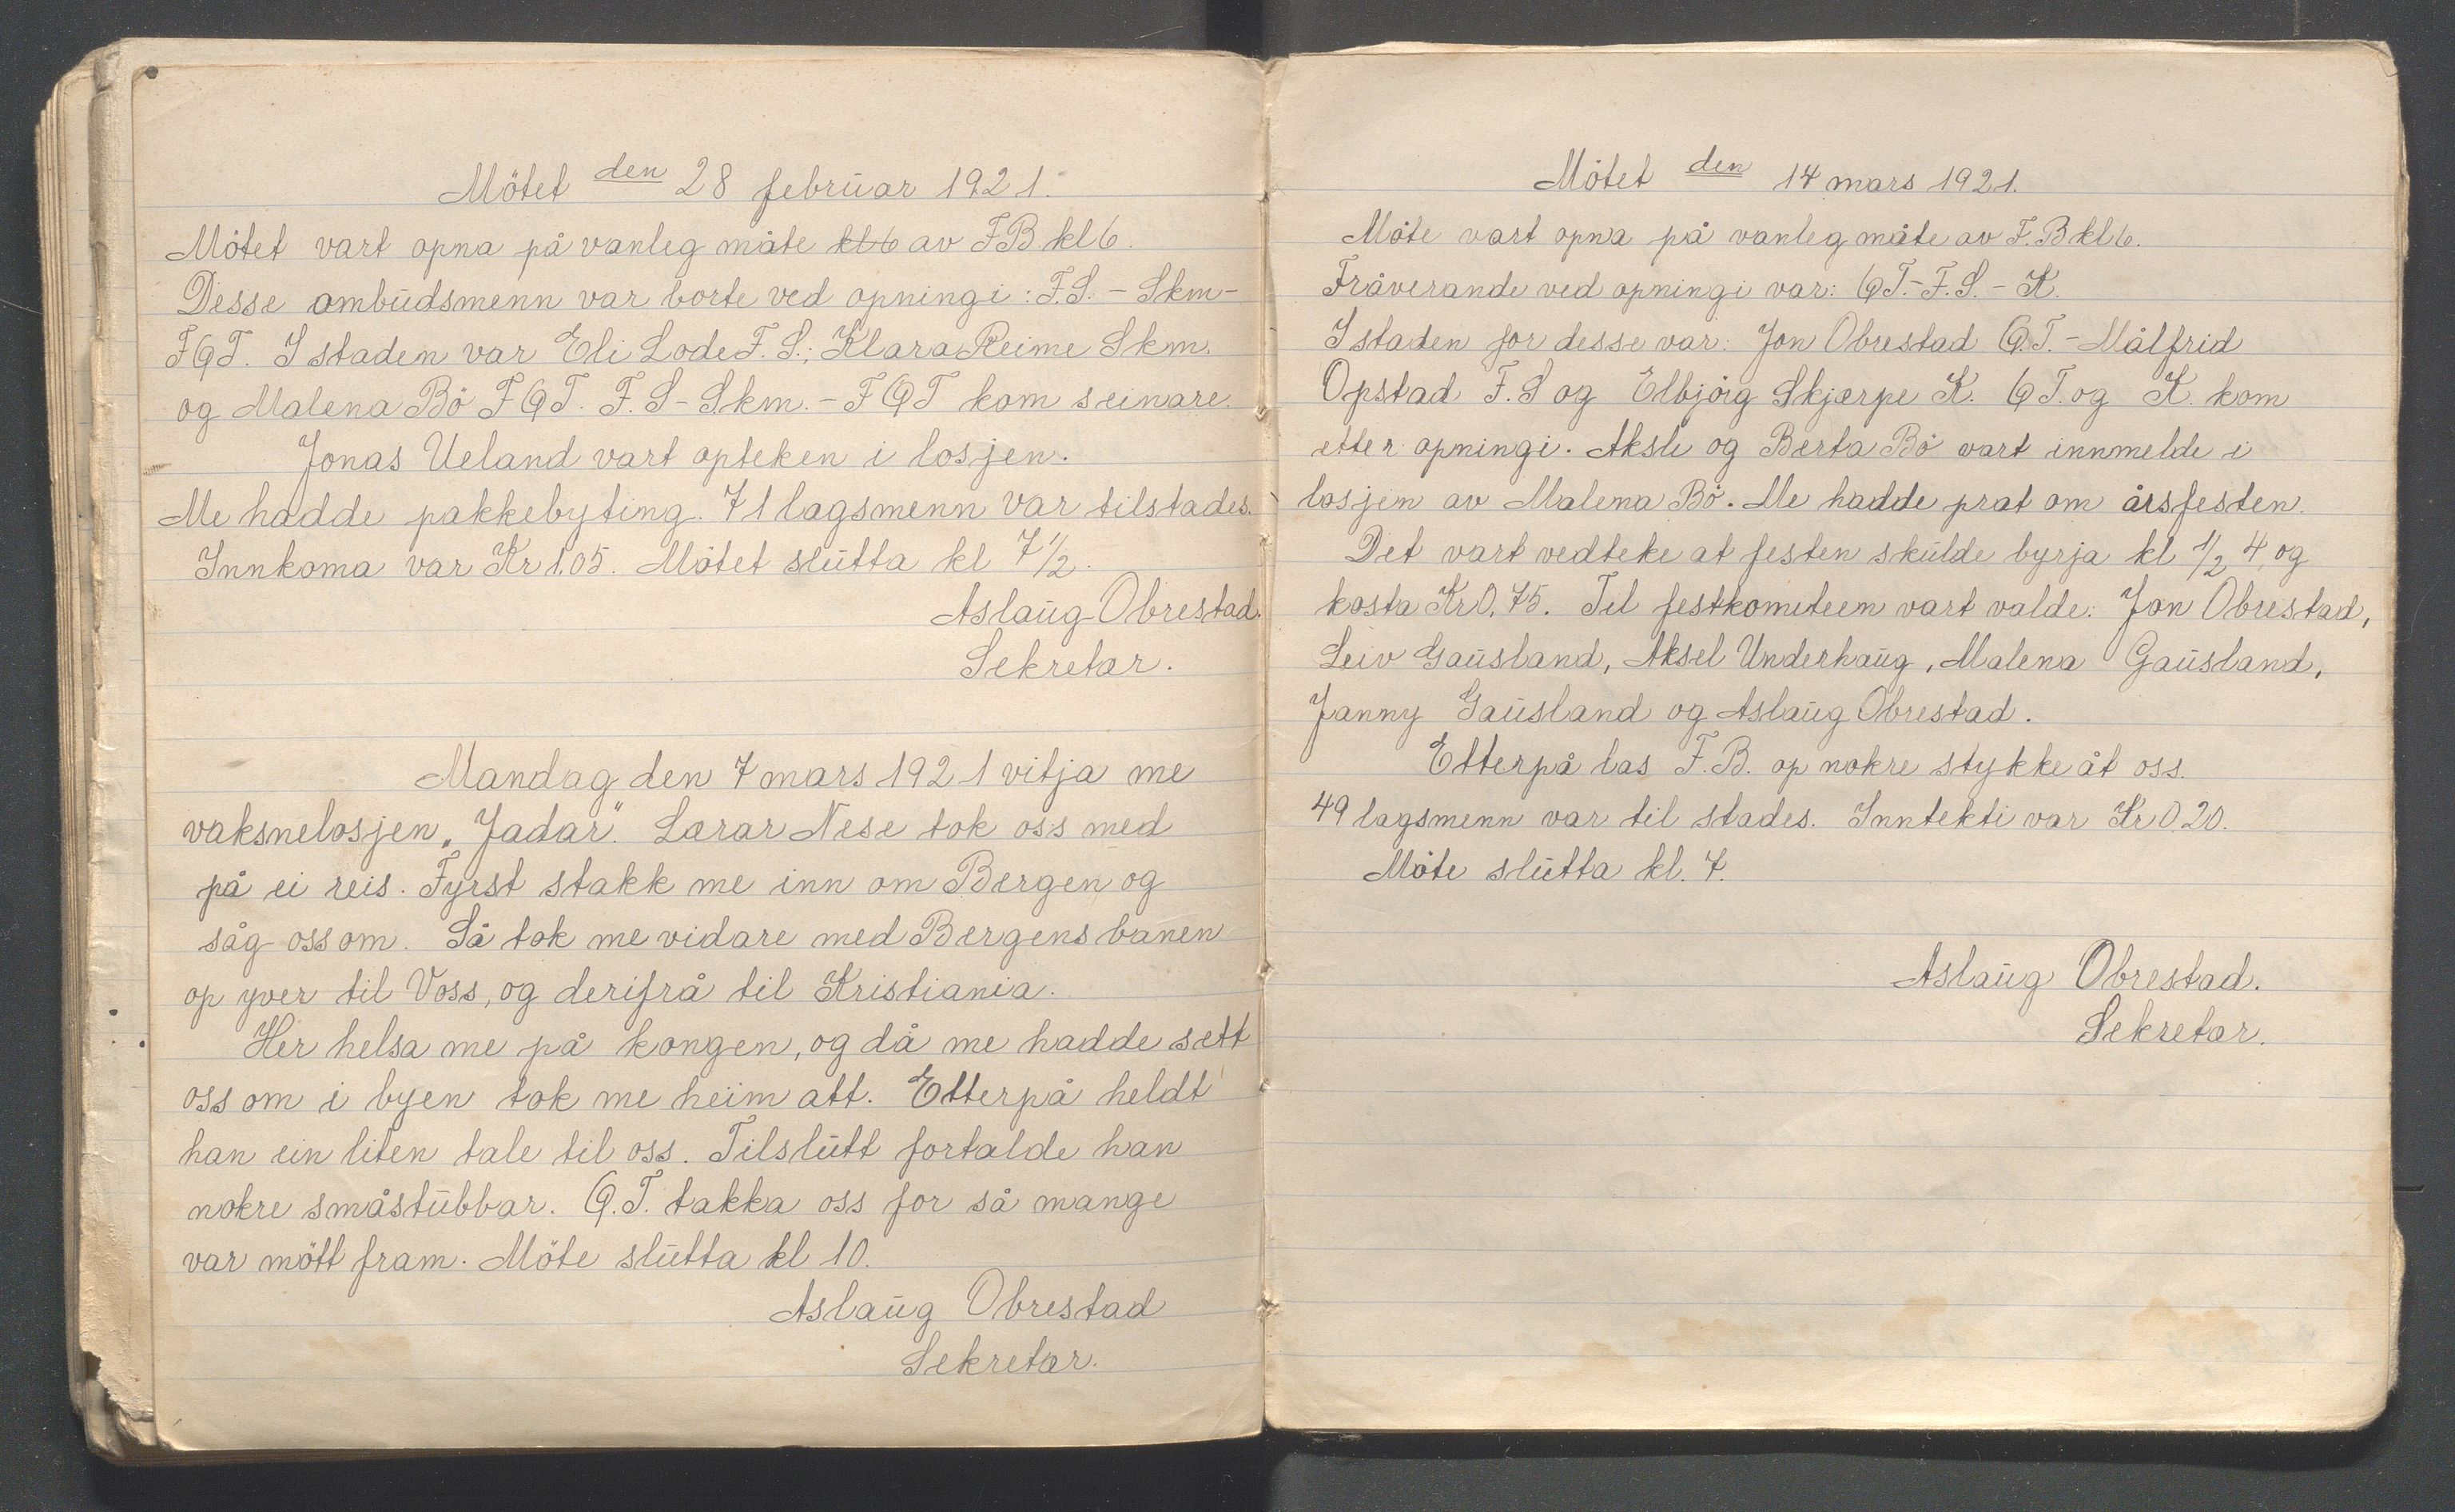 Mötet den 28 februar 1921.
Mötet vart opna på vanleg måte kl 6 av F B kl 6.
Desse ambudsmenn var borte ved opningi: F.S. - Skm -
F Q T. I staden var Eli Lode F. S.; Klara Reime Skm.
og Malena Bö F Q T. F. S - Skm. - F Q T kom seinare.
Jonas Ueland vart opteken i losjen.
Me hadde pakkebyting. 71 lagsmenn var tilstades.
Innkoma var Kr 1,05. Mötet slutta kl 7 1/2.
Aslaug Obrestad.
Sekretær.
Mandag den 7 mars 1921 vitja me
vaksnelosjen „Jadar". Lærar Nese tok oss med
på ei reis. Fyrst stakk me inn om Bergen og
såg oss om. Så tok me vidare med Bergensbanen
op yver til Voss, og derifrå til Kristiania.
Her helsa me på kongen, og då me hadde sett
oss om i byen tok me heim att. Etterpå heldt
han ein liten tale til oss. Tilslutt fortalde han
nokre småstubbar. Q.T. takka oss for så mange
var mött fram. Möte slutta kl 10.
Aslaug Obrestad
Sekretær.
Mötet den 14 mars 1921.
Möte vart opna på vanleg måte av F. B kl 6.
Fråverande ved opningi var: Q T. - F. S. - K.
I staden for desse var: Jon Obrestad Q. T. - Målfrid
Opstad F. S og Elbjörg Skjærpe K. Q T. og K. kom
etter opningi. Aksle og Berta Bö vart innmelde i
losjen av Malena Bö. Me hadde prat om årsfesten.
Det vart vedteke at festen skulde byrja kl 1/2 4, og
kosta Kr 0,75. Til festkomiteen vart valde: Jon Obrestad,
Leiv Gausland, Aksel Underhaug, Malena Gausland,
Janny Gausland og Aslaug Obrestad.
Etterpå las F. B. op nokre stykke åt oss.
49 lagsmenn var til stades. Inntekti var Kr 0 20.
Möte slutta kl. 7.
Aslaug Obrestad.
Sekretær.